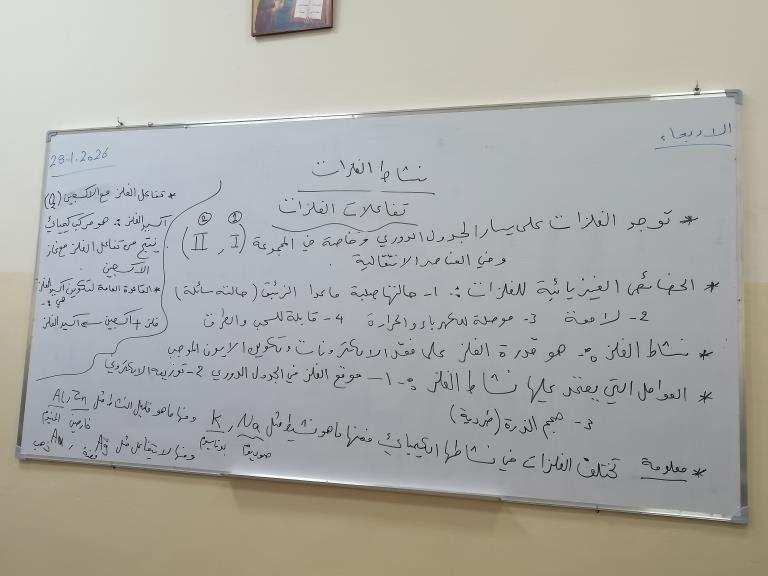 الاربعاء
28.1.2026
نشاط الفلزات
تفاعلات الفلزات
* توجد الفلزات على يسار الجدول الدوري وخاصة في المجموعة (I , II)
① ②
وفي العناصر الانتقالية .
* الخصائص الفيزيائية للفلزات :- 1- حالتها صلبة ماعدا الزئبق (حالته سائلة)
2- لامعة 3- موصلة للكهرباء والحرارة 4- قابلة للسحب والطرق
* نشاط الفلز :- هو قدرة الفلز على فقد الالكترونات وتكوين الايون الموجب
* العوامل التي يعتمد عليها نشاط الفلز :- 1- موقع الفلز في الجدول الدوري 2- توزيعه الالكتروني
3- حجم الذرة (طردية)
* معلومة تختلف الفلزات في نشاطها الكيميائي فمنها ماهو نشيط مثل K , Na ومنها ماهو قليل النشاط مثل Al , Zn
صوديوم بوتاسيوم خارصين
ومنها لا يتفاعل مثل Ag فضة , Au ذهب
* تفاعل الفلز مع الاكسجين (O2)
اكسيد الفلز :- هو مركب كيميائي
ينتج من تفاعل الفلز مع غاز
الاكسجين
* القاعدة العامة لتكوين اكسيد الفلز
هي :-
فلز + اكسجين ← اكسيد الفلز